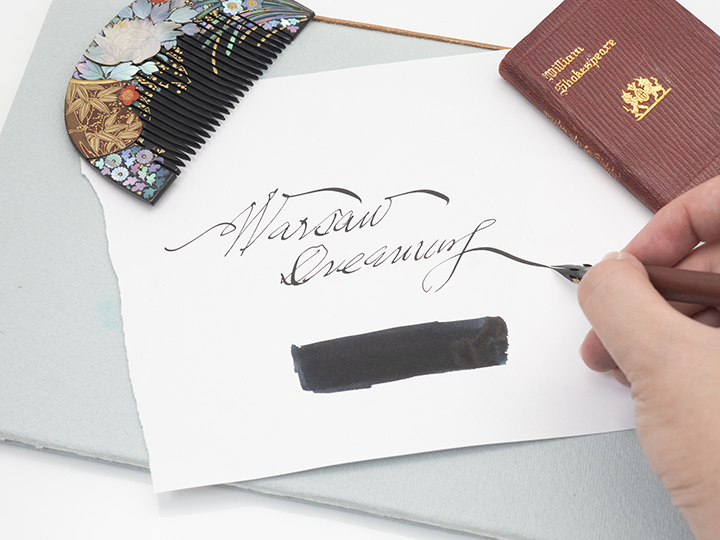 Warsaw
Dreaming
William
Shakespeare